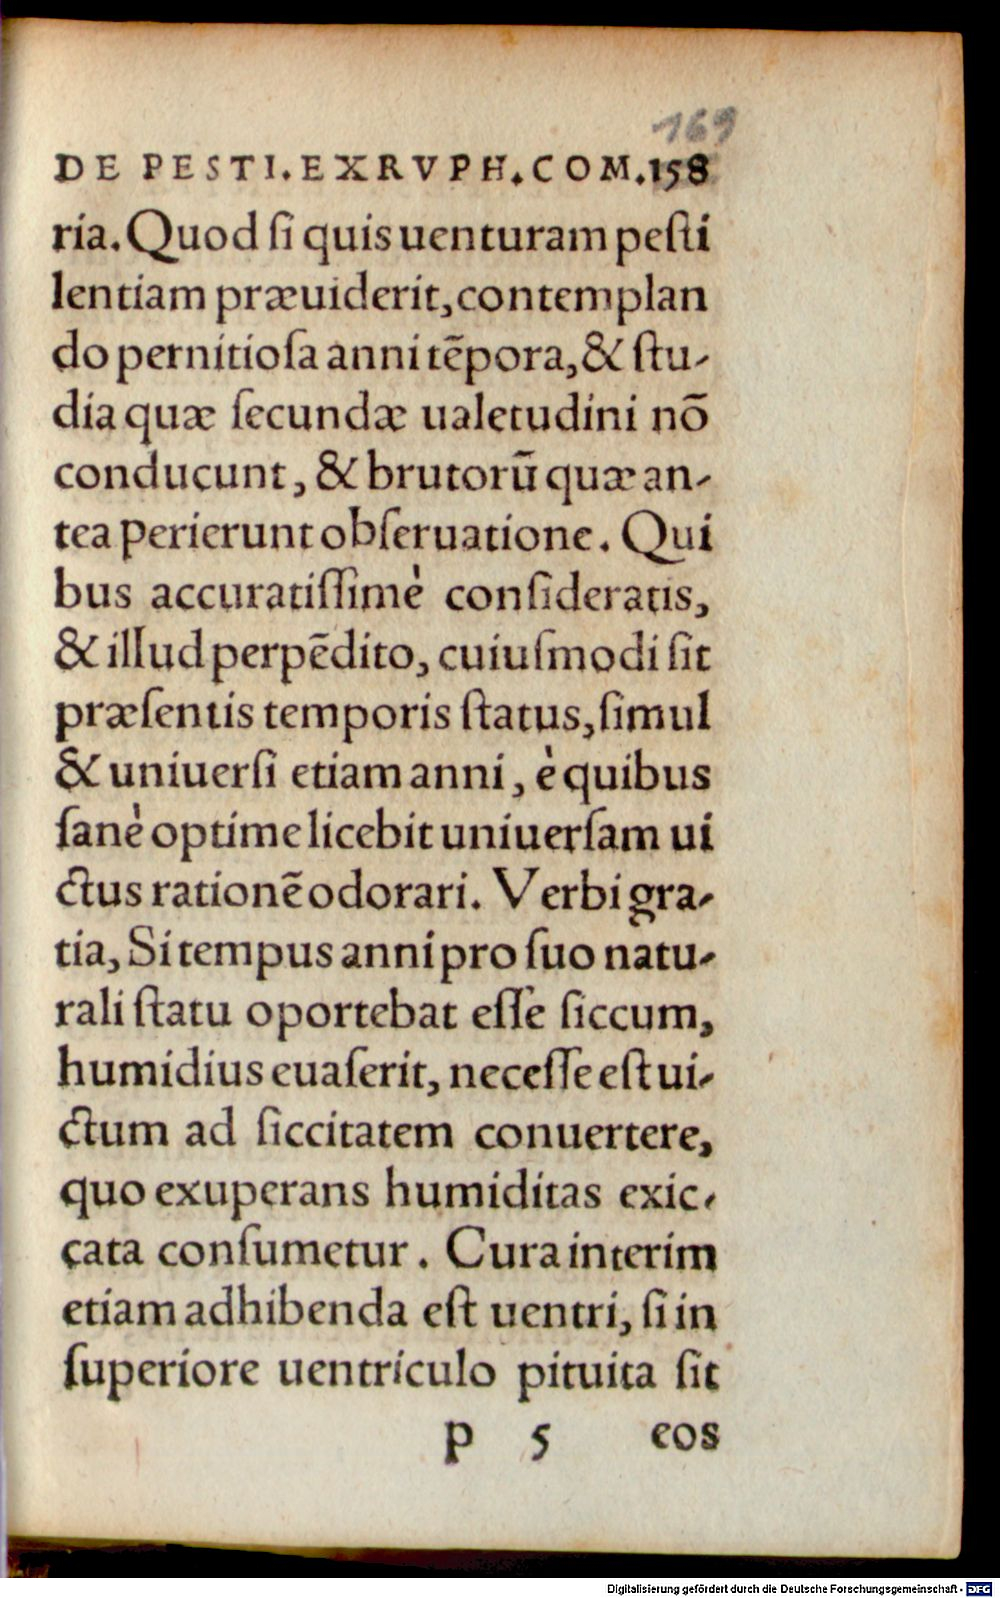 169
DE PESTI.EXRVPH.COM.158
ria. Quod ſi quis uenturam peſti
lentiam præuiderit, contemplan
do pernitioſa anni tẽpora, & ſtu-
dia quæ ſecundæ ualetudini nõ
conducunt, & brutorũ quæ an-
tea perierunt obſeruatione. Qui
bus accuratiſſimè conſideratis,
& illud perpẽdito, cuiuſmodi ſit
præſentis temporis ſtatus, ſimul
& uniuerſi etiam anni, è quibus
ſanè optime licebit uniuerſam ui
ctus rationẽ odorari. Verbi gra-
tia, Si tempus anni pro ſuo natu-
rali ſtatu oportebat eſſe ſiccum,
humidius euaſerit, neceſſe eſt ui-
ctum ad ſiccitatem conuertere,
quo exuperans humiditas exic-
cata conſumetur. Cura interim
etiam adhibenda eſt uentri, ſi in
ſuperiore uentriculo pituita ſit
p 5 eos
Digitalisierung gefördert durch die Deutsche Forschungsgemeinschaft - DFG